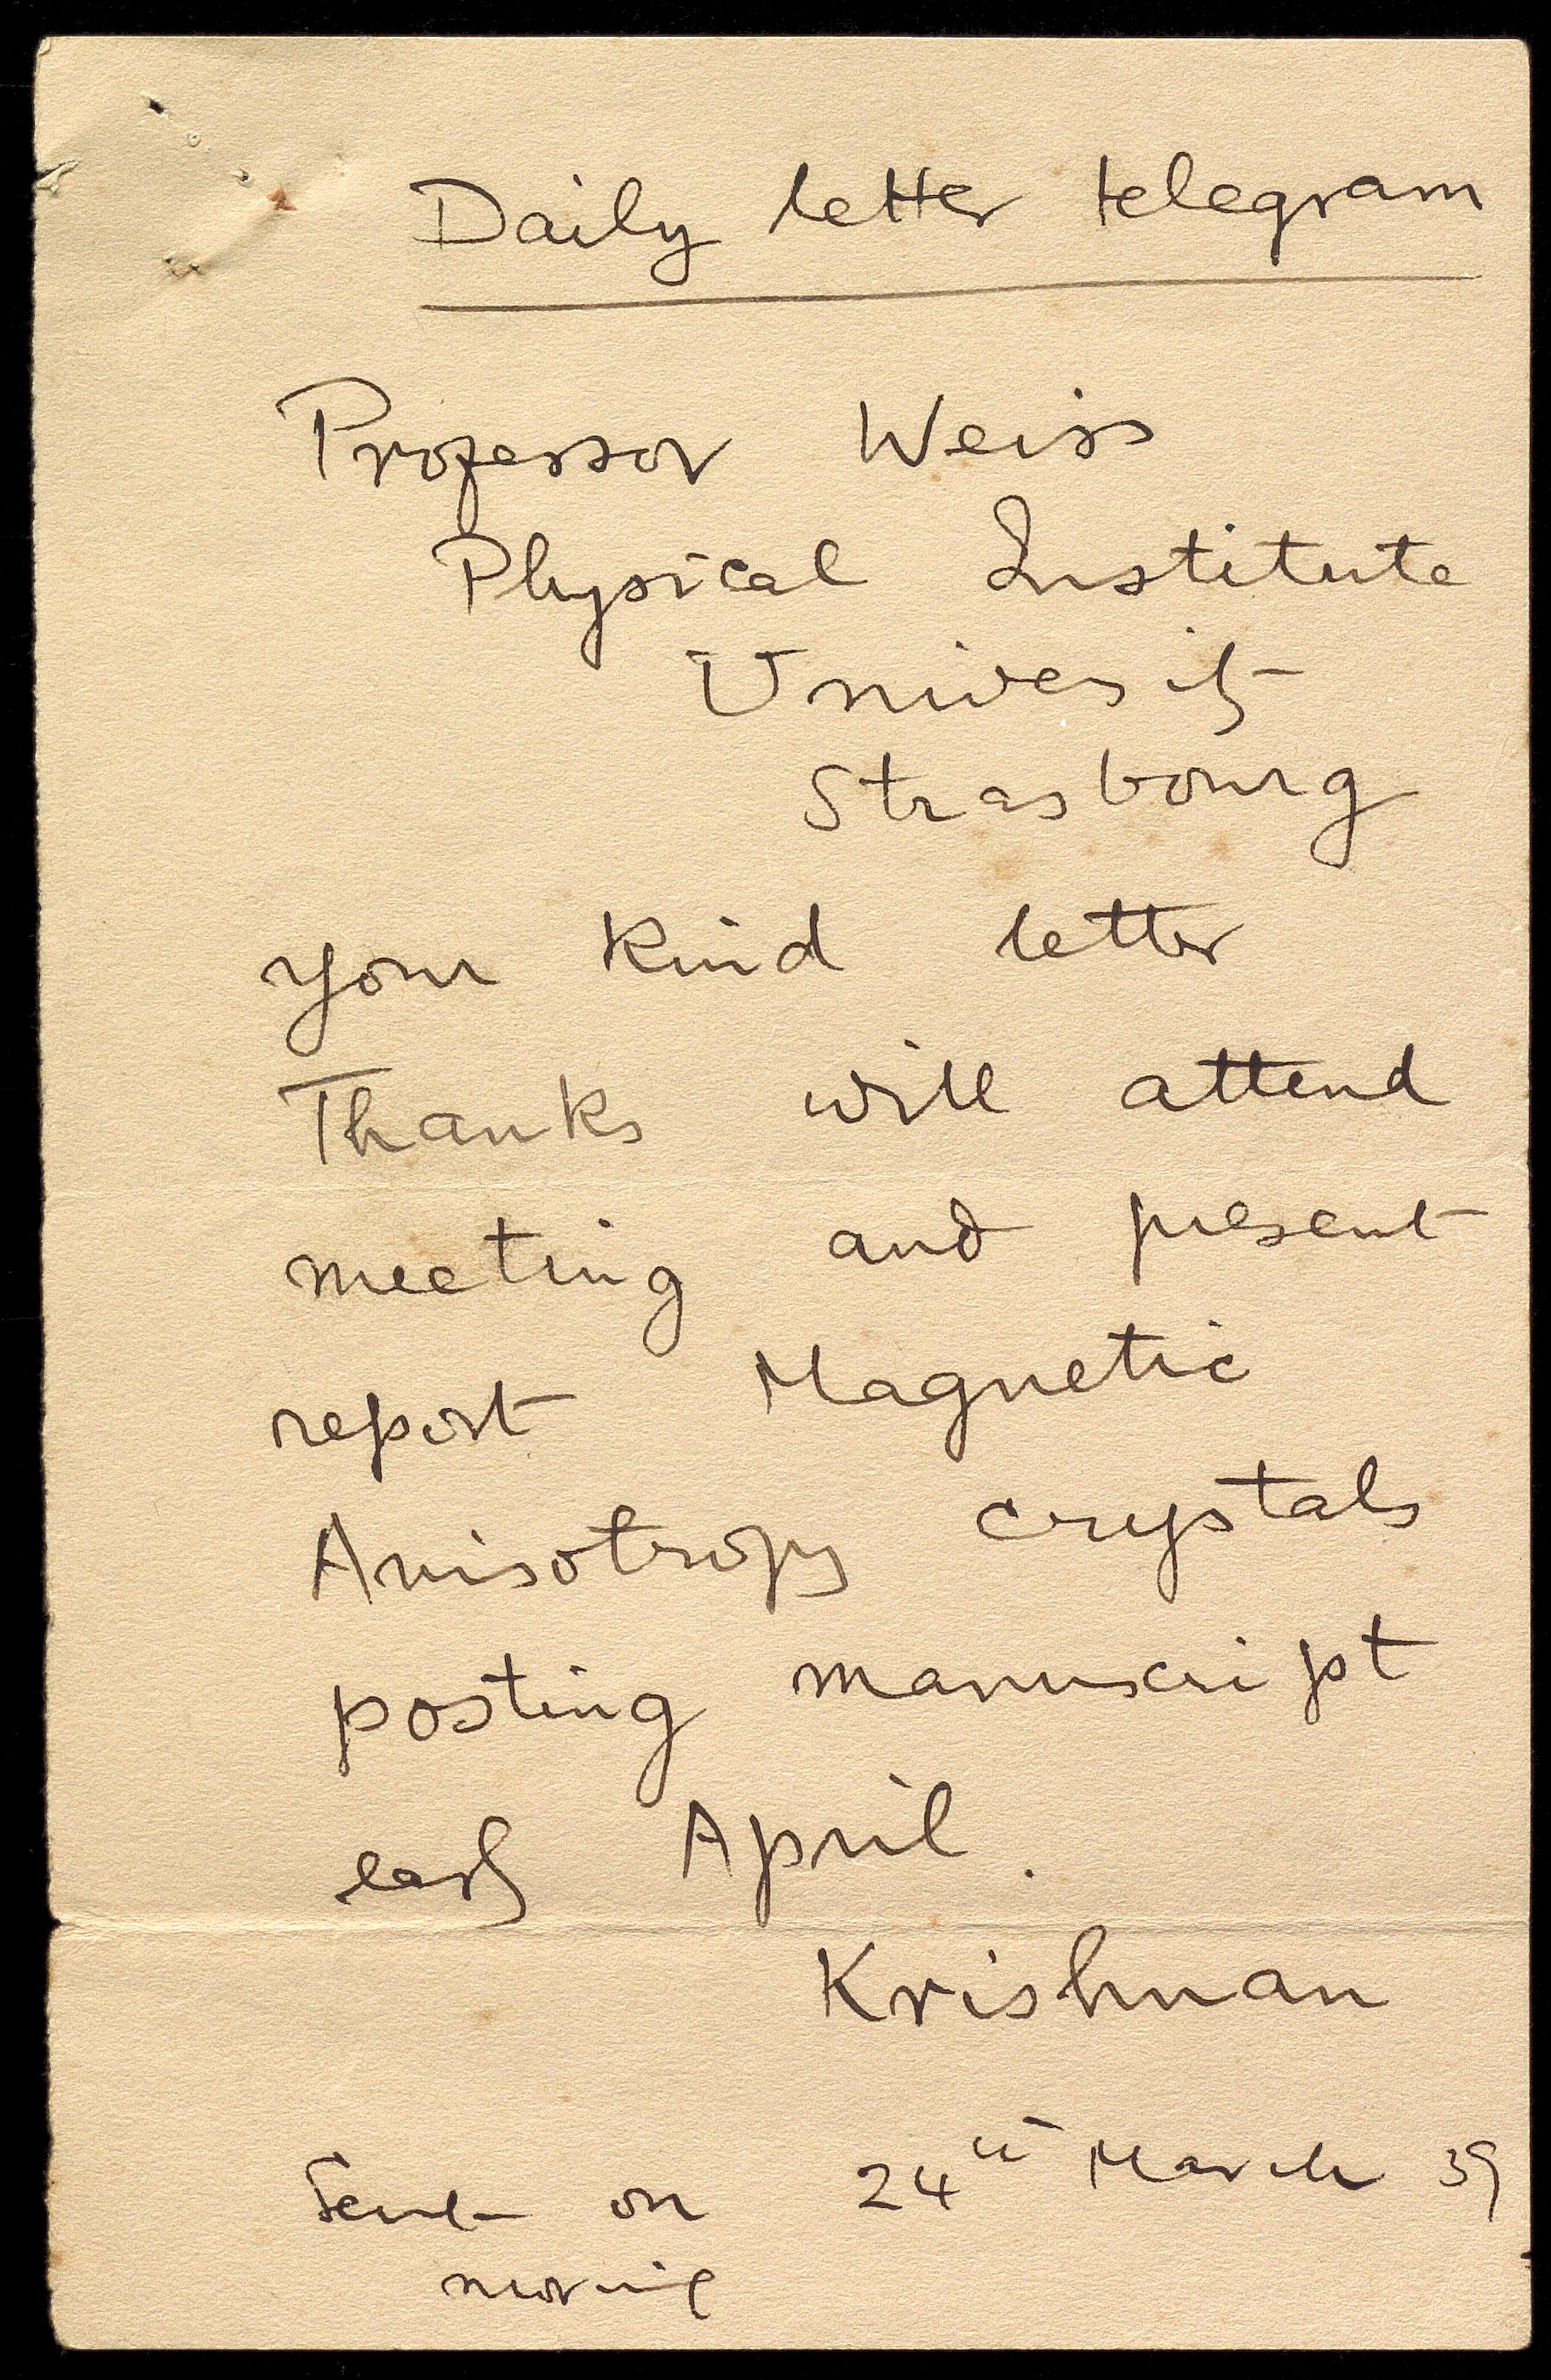 Daily letter telegram
Professor Weiss
Physical Institute
University
Strasbourg
your kind letter
Thanks will attend
meeting and present
report Magnetic
Anisotropy crystals
posting manuscript
early April.
Krishnan
Sent on 24th March 39
morning